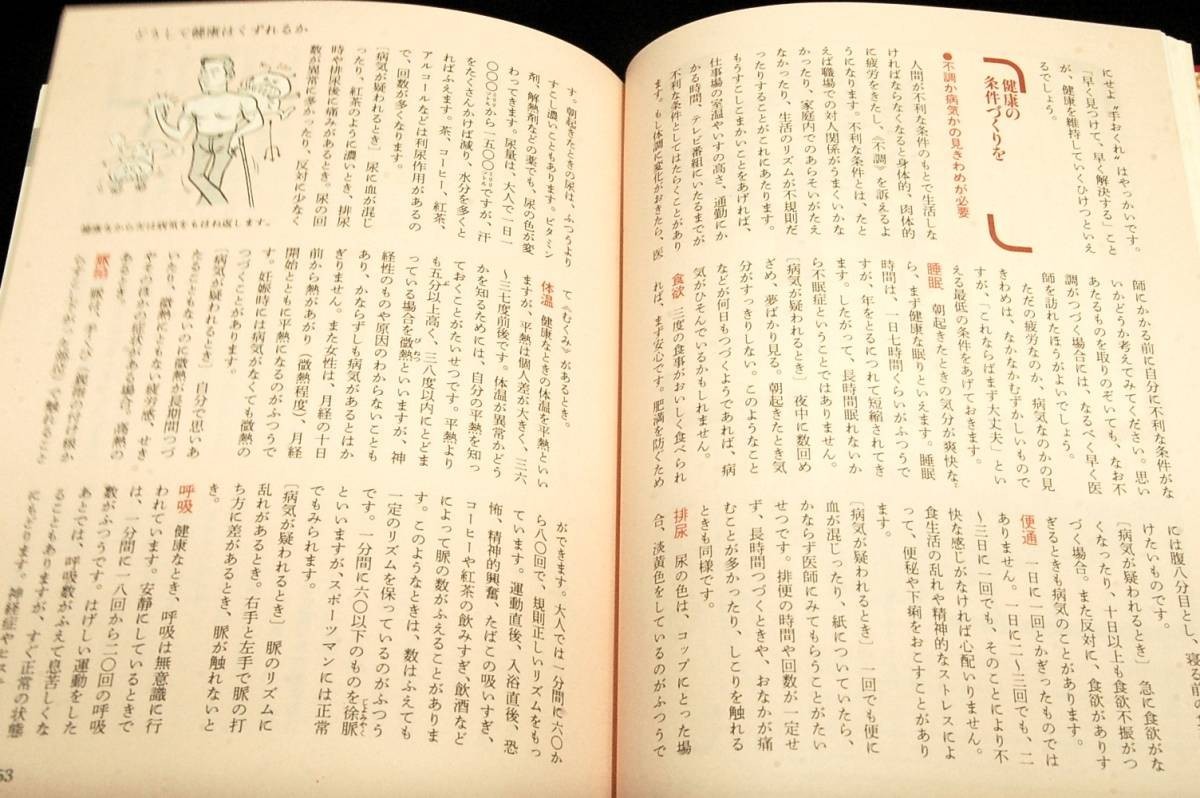 にせよ〝手おくれ〟はやっかいです。
「早く見つけて、早く解決する」こと
が、健康を維持していくひけつといえ
るでしょう。
健康の
条件づくりを
●不調か病気かの見きわめが必要
人間が不利な条件のもとで生活しな
ければならなくなると身体的、肉体的
に疲労をきたし、《不調》を訴えるよ
うになります。不利な条件とは、たと
えば職場での対人関係がうまくいかな
かったり、家庭内でのあらそいがたえ
なかったり、生活のリズムが不規則だ
ったりすることがこれにあたります。
もうすこしこまかいことをあげれば、
仕事場の室温やいすの高さ、通勤にか
かる時間、テレビ番組にいたるまでが
不利な条件としてはたらくことがあり
ます。もし体調に変化がおきたら、医
師にかかる前に自分に不利な条件がな
いかどうか考えてみてください。思い
あたるものを取りのぞいても、なお不
調がつづく場合には、なるべく早く医
師を訪れたほうがよいでしょう。
ただの疲労なのか、病気なのかの見
きわめは、なかなかむずかしいもので
すが、「これならばまず大丈夫」とい
える最低の条件をあげておきます。
睡眠 朝起きたときの気分が爽快な
ら、まず健康な眠りといえます。睡眠
時間は、一日七時間くらいがふつうで
すが、年をとるにつれて短縮されてき
ます。したがって、長時間眠れないか
ら不眠症ということではありません。
〔病気が疑われるとき〕 夜中に数回め
ざめ、夢ばかり見る。朝起きたとき気
分がすっきりしない。このようなこと
などが何日もつづくようであれば、病
気がひそんでいるかもしれません。
食欲 三度の食事がおいしく食べられ
れば、まず安心です。肥満を防ぐため
には腹八分目とし、寝る前の
けたいものです。
〔病気が疑われるとき〕 急に食欲がな
くなったり、十日以上も食欲不振がつ
づく場合。また反対に、食欲がありす
ぎるときも病気のことがあります。
便通 一日に一回とかぎったものでは
ありません。一日に二〜三回でも、二
〜三日に一回でも、そのことにより不
快な感じがなければ心配いりません。
食生活の乱れや精神的なストレスによ
って、便秘や下痢をおこすことがあり
ます。
〔病気が疑われるとき〕 一回でも便に
血が混じったり、紙についていたら、
かならず医師にみてもらうことがたい
せつです。排便の時間や回数が一定せ
ず、長時間つづくときや、おなかが痛
むことが多かったり、しこりを触れる
ときも同様です。
排尿 尿の色は、コップにとった場
合、淡黄色をしているのがふつうで
どうして健康はくずれるか
す。朝起きたときの尿は、ふつうより
すこし濃いこともあります。ビタミン
剤、解熱剤などの薬でも、尿の色が変
わってきます。尿量は、大人で一日一
〇〇〇ミリリットルから一五〇〇ミリリットルですが、汗
をたくさんかけば減り、水分を多くと
ればふえます。茶、コーヒー、紅茶、
アルコールなどは利尿作用があるの
で、回数が多くなります。
〔病気が疑われるとき〕 尿に血が混じ
ったり、紅茶のように濃いとき、排尿
時や排尿後に痛みがあるとき。尿の回
数が異常に多かったり、反対に少なく
健康なからだは病気をもはね返します。
て《むくみ》があるとき。
体温 健康なときの体温を平熱といい
ますが、平熱は個人差が大きく、三六
〜三七度前後です。体温が異常かどう
かを知るためには、自分の平熱を知っ
ておくことがたいせつです。平熱より
も五分以上高く、三八度以内にとどま
っている場合を微熱といいますが、神
経性のものや原因のわからないことも
あり、かならずしも病気があるとはか
ぎりません。また女性は、月経の十日
前から熱があがり（微熱程度）、月経
開始とともに平熱になるのがふつうで
す。妊娠時には病気がなくても微熱の
つづくことがあります。
〔病気が疑われるとき〕 自分で思いあ
たるともないのに微熱が長期間つづ
いたり、微熱にともない疲労感、せき
やそのほかの症状がある場合、高熱の
あるとき。
脈拍
ができます。大人では一分間に六〇か
ら八〇回で、規則正しいリズムをもっ
ています。運動直後、入浴直後、恐
怖、精神的興奮、たばこの吸いすぎ、
コーヒーや紅茶の飲みすぎ、飲酒など
によって脈の数がふえることがありま
す。このようなときは、数はふえても
一定のリズムを保っているのがふつう
です。一分間に六〇以下のものを徐脈
といいますが、スポーツマンには正常
でもみられます。
〔病気が疑われるとき〕 脈のリズムに
乱れがあるとき。右手と左手で脈の打
ち方に差があるとき、脈が触れないと
き。
呼吸 健康なとき、呼吸は無意識に行
われています。安静にしているときで
は、一分間に一八回から二〇回の呼吸
数がふつうです。はげしい運動をした
あとでは、呼吸数がふえて息苦しくな
ることもありますが、すぐ正常の状態
にもどります。神経症やヒス
53